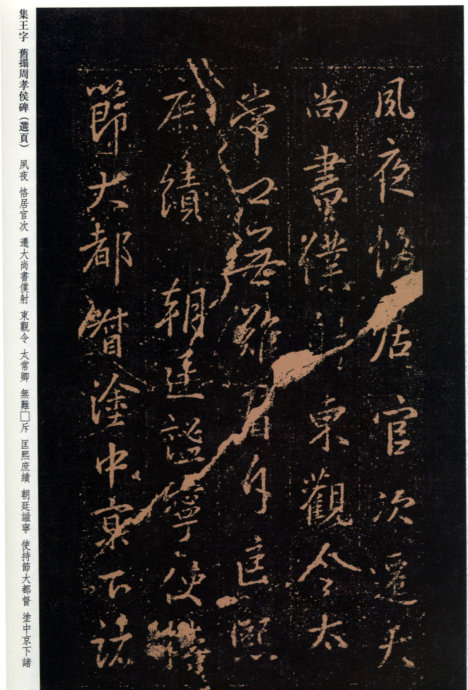 夙夜恪居官次遷大
尚書僕射東觀令太
常卿無難斥匡熙
庶績 朝廷謐寧使持
節大都督塗中京下諸
集王字 舊搨周孝侯碑（選頁） 夙夜 恪居官次 遷大尚書僕射 東觀令 太常卿 無難□斥 匡熙庶績 朝廷謐寧 使持節大都督 塗中京下諸